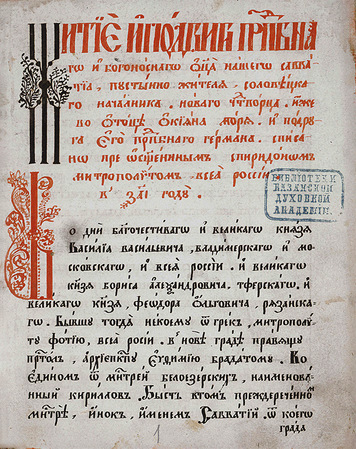 Житїе и подвиги прпⷣбна
гѡ и богоноснагѡ ѻц҃а нашегѡ савва
тїа, пустынно жителя, соловецка
го началника. новаго чю́дтворца. иже
во ѻтоцѣ ѻкїана моря. и подру
га єгѡ прпⷣбнаго германа. списа
но преѡсщ҃еннымъ спиридономъ
митрополитомъ. всея россїи
в году.
БИБЛІОТЕКИ
КАЗАНСКОЙ
ДУХОВНОЙ
АКАДЕМІИ.
Во дни благочестивагѡ и великагѡ князя
василїя васильевича, владимерскагѡ и мо
сковскагѡ, и всея россїи. и великагѡ
кн҃зя бориса александровича. тферскагѡ, и
великагѡ кн҃зя, феодора ѻльговича, рязанска
гѡ. бывшу тогда некоему ѿ грекъ, митрополи
ту фотїю, всея росїи. в новѣ градѣ правящу
прⷭтолъ, архїепⷭкпу еуѳимїю брадатому. Во
єдиномъ ѿ мн҃трей белоезерскихъ, наименова
нный кирилловъ. Бысть втомъ преждереченно
мн҃трѣ, инокъ, именемъ Савватїй ѿ коегѡ
града
1